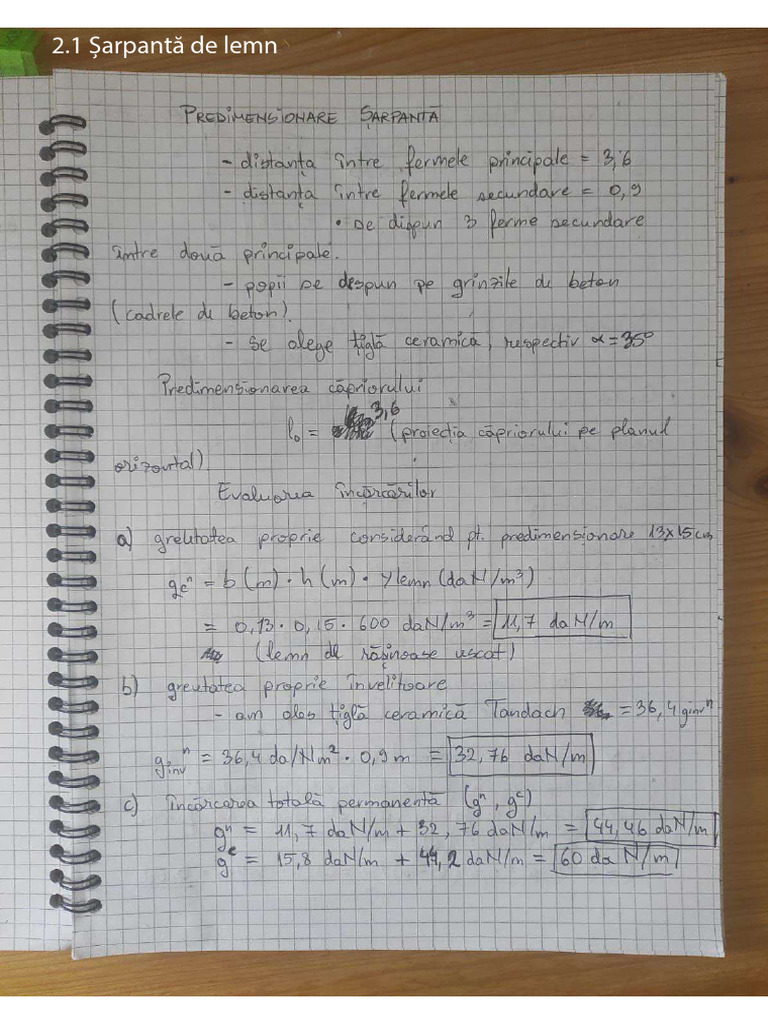 2.1 Șarpantă de lemn
PREDIMENSIONARE ȘARPANTĂ
- distanța între fermele principale = 3,6
- distanța între fermele secundare = 0,9
• se dispun 3 ferme secundare
între două principale.
- popii se despun pe grinzile de beton
(cadrele de beton).
- se alege țiglă ceramică, respectiv α = 35°
Predimensionarea căpriorului
l₀ = 3,6 (proiecția căpriorului pe planul
orizontal).
Evaluarea încărcărilor
a) greutatea proprie considerând pt. predimensionare 13x15cm
gcⁿ = b (m) · h (m) · γlemn (daN/m³)
= 0,13 · 0,15 · 600 daN/m³ = 11,7 daN/m
(lemn de rășinoase uscat)
b) greutatea proprie învelitoare
- am ales țiglă ceramică Tondach = 36,4 ginvⁿ
ginvⁿ = 36,4 da/Nm² · 0,9 m = 32,76 daN/m
c) încărcarea totală permanentă (gⁿ, gᶜ)
gⁿ = 11,7 daN/m + 32,76 daN/m = 44,46 daN/m
gᶜ = 15,8 daN/m + 44,2 daN/m = 60 daN/m